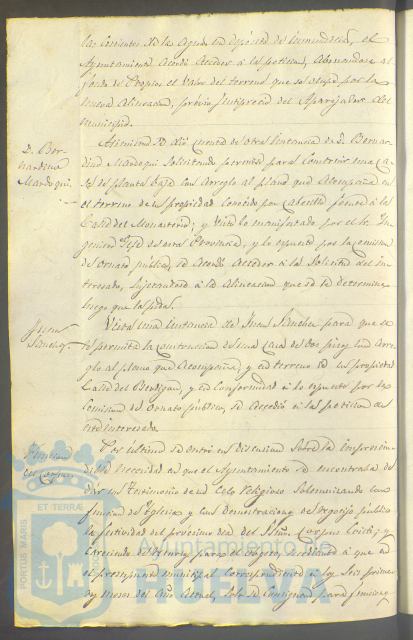 las corrientes de las aguas en epocas de inundacion, el
Ayuntamiento Acordó Acceder á la peticion, Abonandose al
fondo de Propios el Valor del terreno que se ocupe por la
nueva Alineacion, previo justiprecio del Aparejador del
municipio.
D. Bernardino
Mardoqui
Asimismo se dió cuenta de otra instancia de D. Bernardino
Mardoqui solicitando permiso para construir una casa
de planta baja con arreglo al plano que acompaña en
el terreno de su propiedad conocido por Cabecillo frente á la
Calle del Monasterio; y visto lo manifestado por el Sr. Ingeniero
Gefe de esta Provincia, y lo espuesto por la comision
de Ornato público, se Acordó Acceder á la Solicitud del interesado,
sujetandose á la Alineacion que se le determine
luego que la pida.
Juan
Sanchez
Vista una instancia de Juan Sanchez para que se
le permita la construccion de una casa de dos pisos con arreglo
al plano que acompaña, y en terreno de su propiedad
Calle del Bendigan, y en conformidad á lo espuesto por la
Comision de Ornato público, se Accedió á la peticion de
este interesado.
Funcion
del Corpus
Por último se entró en discusion sobre la imprescindible
necesidad en que el Ayuntamiento se encontraba de
dar un testimonio de su Celo Religioso solemnizando con
funcion de Iglesia y con demostraciones de regocijo público
la festividad del proximo dia del SSmo. Corpus Cristi; y
careciendo de
el presupuesto municipal correspondiente á los seis primeros
meses del Año Actual, solo se consignan para funciones
PORTUS MARIS
ET TERRÆ
Ayuntamiento de
HUELVA